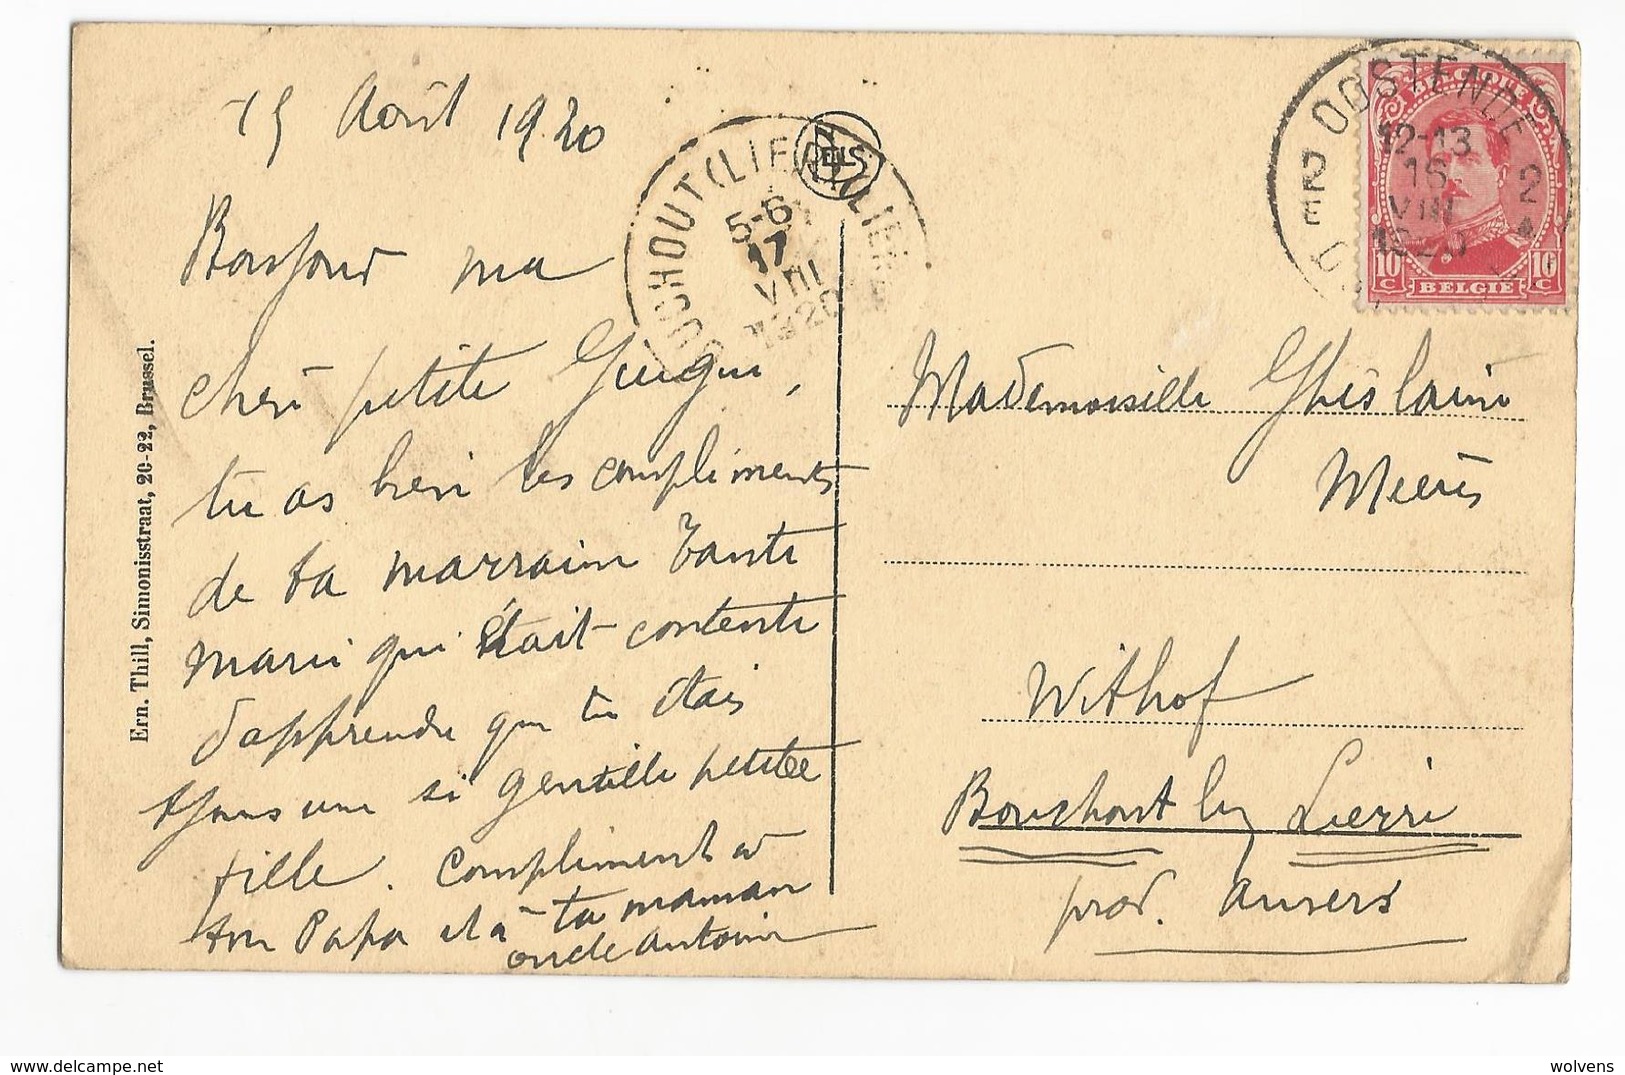 15 Août 1920
Bonjour ma
chèri petite Guigui,
tu as bien les compliments
de ta marraine Tante
Marie qui était contente
d'apprendre que tu étais
toujours une si gentille petite
fille. Compliments à
ton Papa et à ta maman
oncle Antoine
Ern. Thill, Simonisstraat, 20-22, Brussel.
BOUCHOUT (LIER)
5-6
17
VIII
1920
NELS
OOSTENDE
12-13
16
VIII
1920
2
E
2
BELGIQUE
10 C
BELGIË
10 C
Mademoiselle Ghislaine
Meeùs
Withof
Bouchout lez Lierre
prov. Anvers
https://www.delcampe.net
wolvens